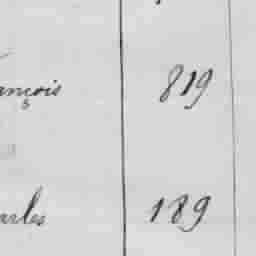 ançois 819
arles 189